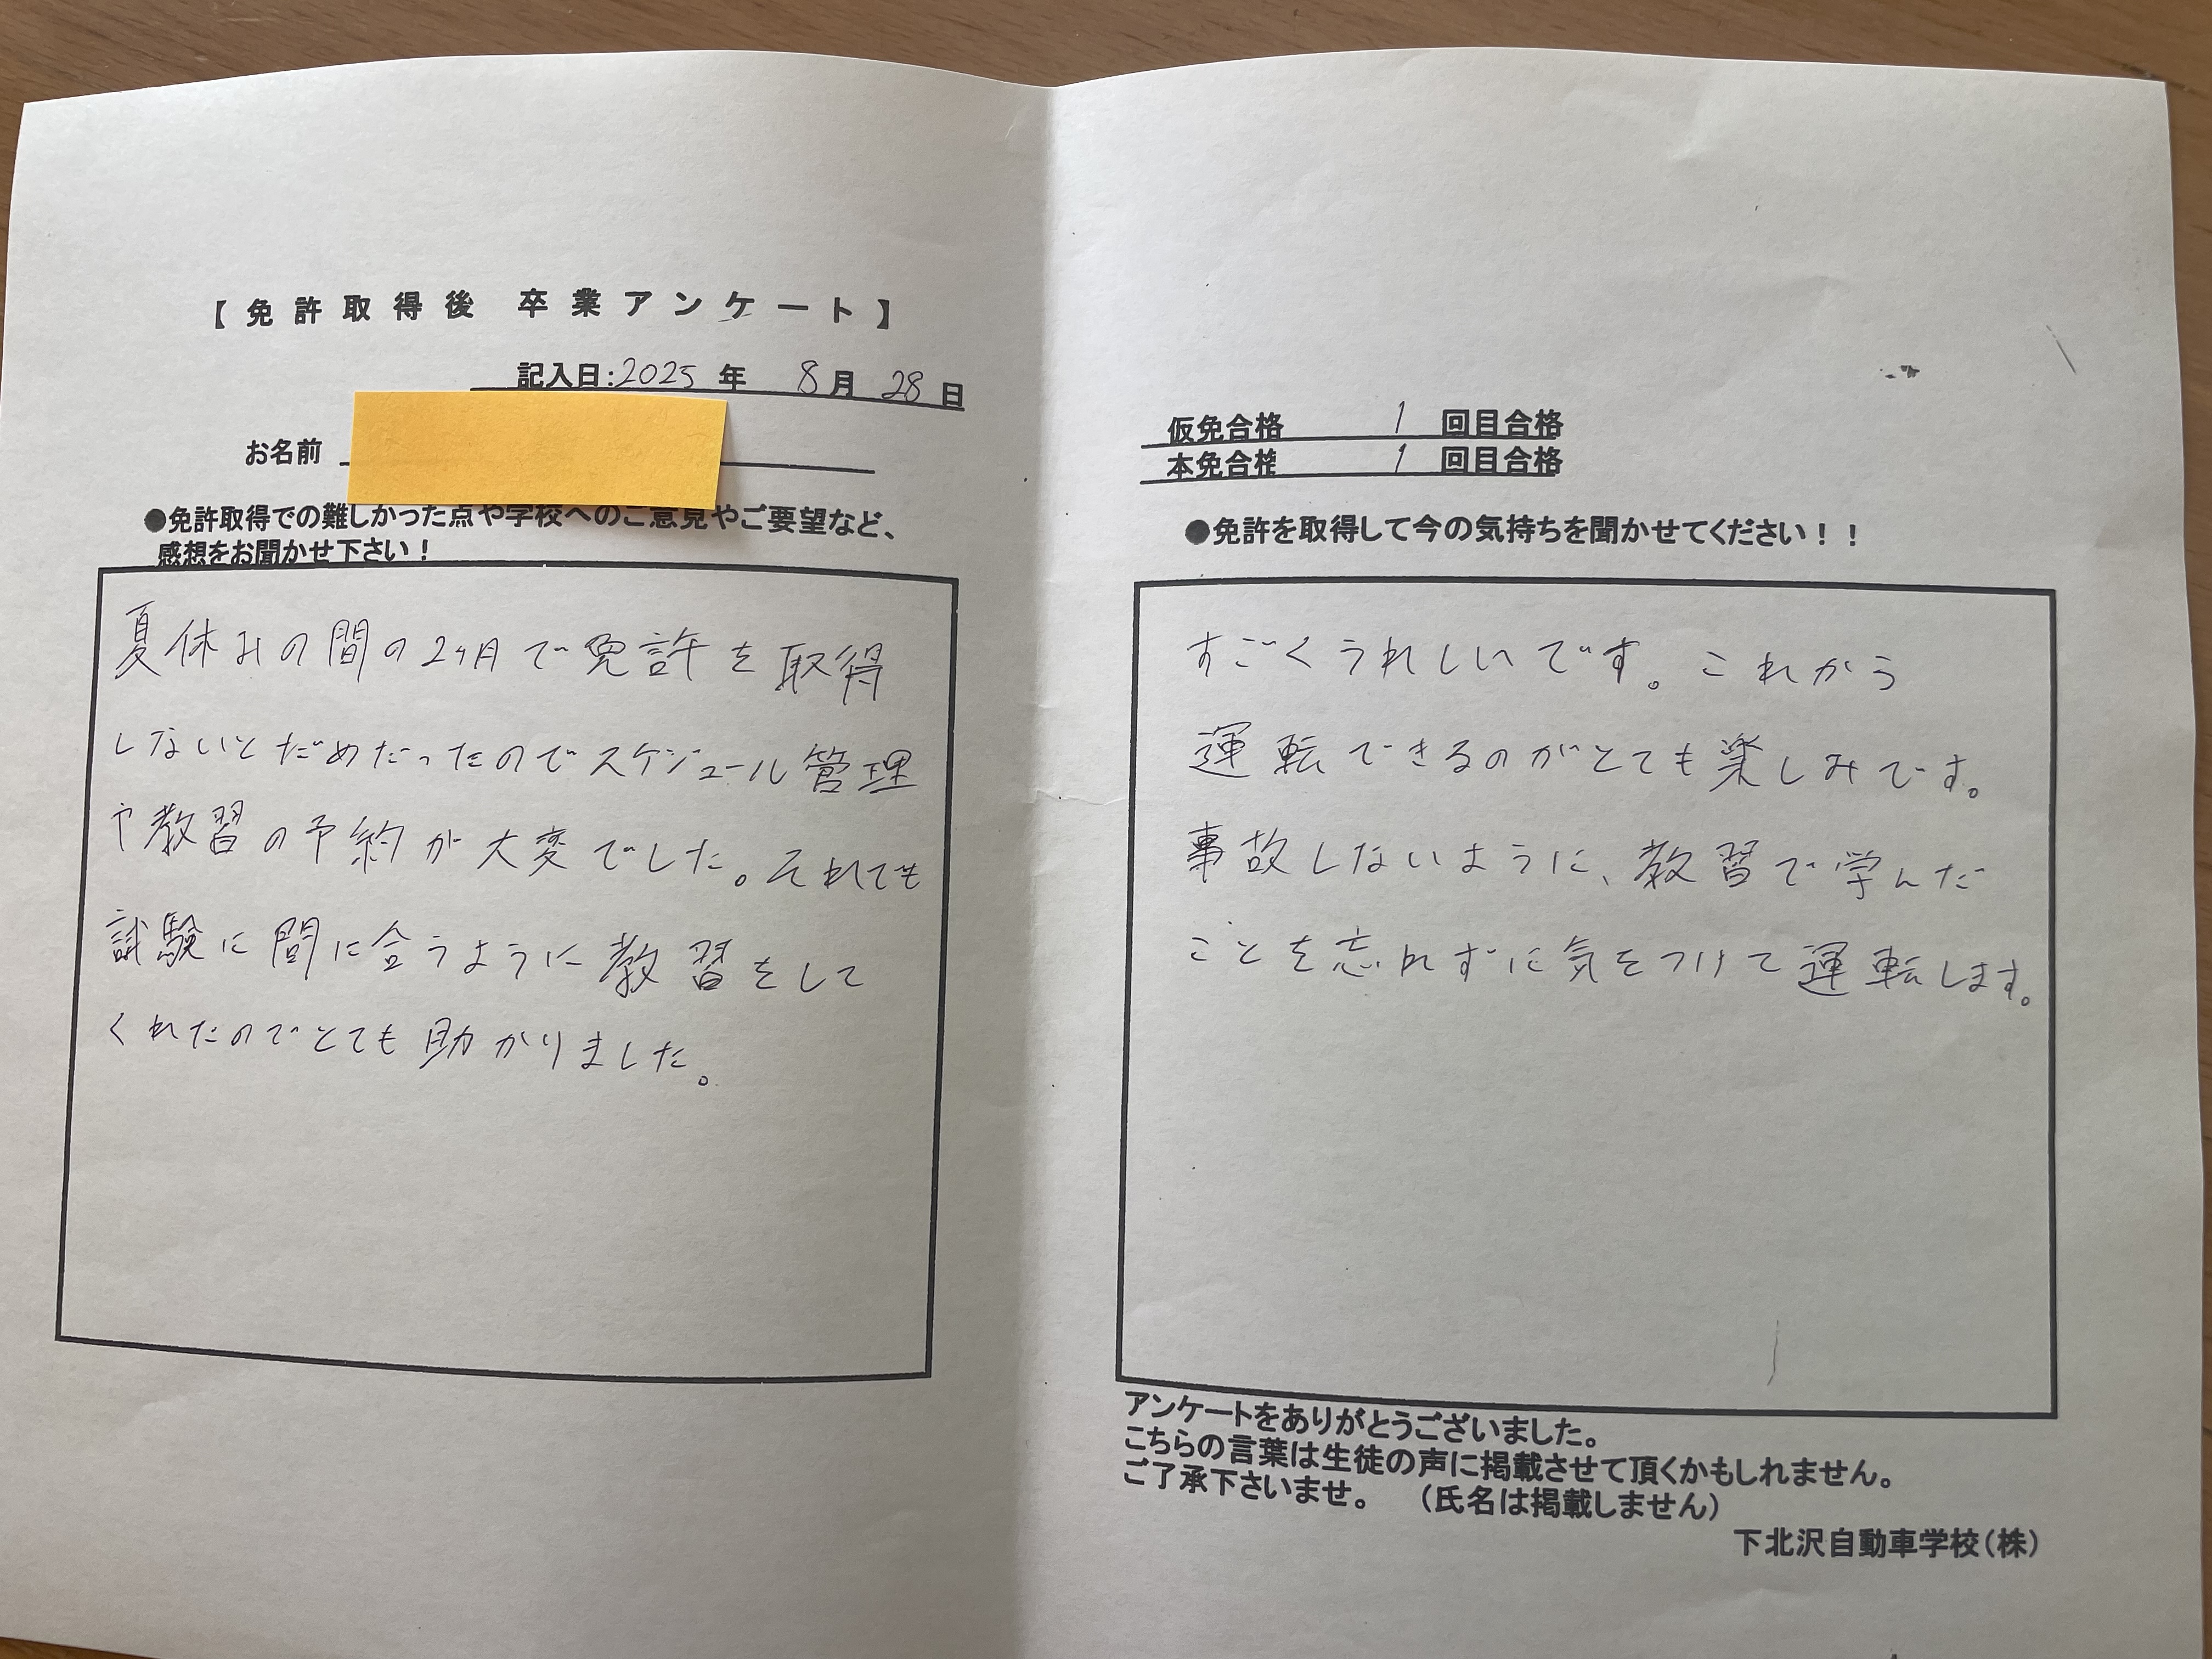 【免許取得後 卒業アンケート】
記入日:2025年 8月 28日
お名前
●免許取得での難しかった点や学校へのご意見やご要望など、
感想をお聞かせ下さい！
夏休みの間の2ヶ月で免許を取得
しないとだめだったのでスケジュール管理
や教習の予約が大変でした。それでも
試験に間に合うように教習をして
くれたのでとても助かりました。
仮免合格 1 回目合格
本免合格 1 回目合格
●免許を取得して今の気持ちを聞かせてください！！
すごくうれしいです。これから
運転できるのがとても楽しみです。
事故しないように、教習で学んだ
ことを忘れずに気をつけて運転します。
アンケートをありがとうございました。
こちらの言葉は生徒の声に掲載させて頂くかもしれません。
ご了承下さいませ。 （氏名は掲載しません）
下北沢自動車学校（株）